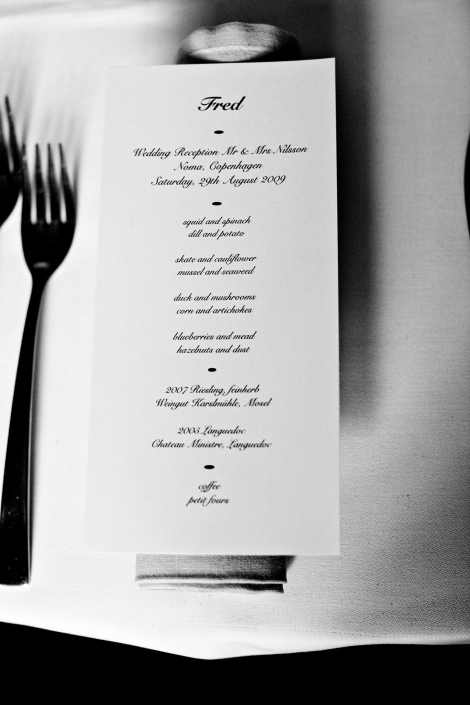 Fred
Wedding Reception Mr & Mrs Nilsson
Noma, Copenhagen
Saturday, 29th August 2009
squid and spinach
dill and potato
skate and cauliflower
mussel and seaweed
duck and mushrooms
corn and artichokes
blueberries and mead
hazelnuts and dust
2007 Riesling, feinherb
Weingut Karslmühle, Mosel
2005 Languedoc
Chateau Ministre, Languedoc
coffee
petit fours